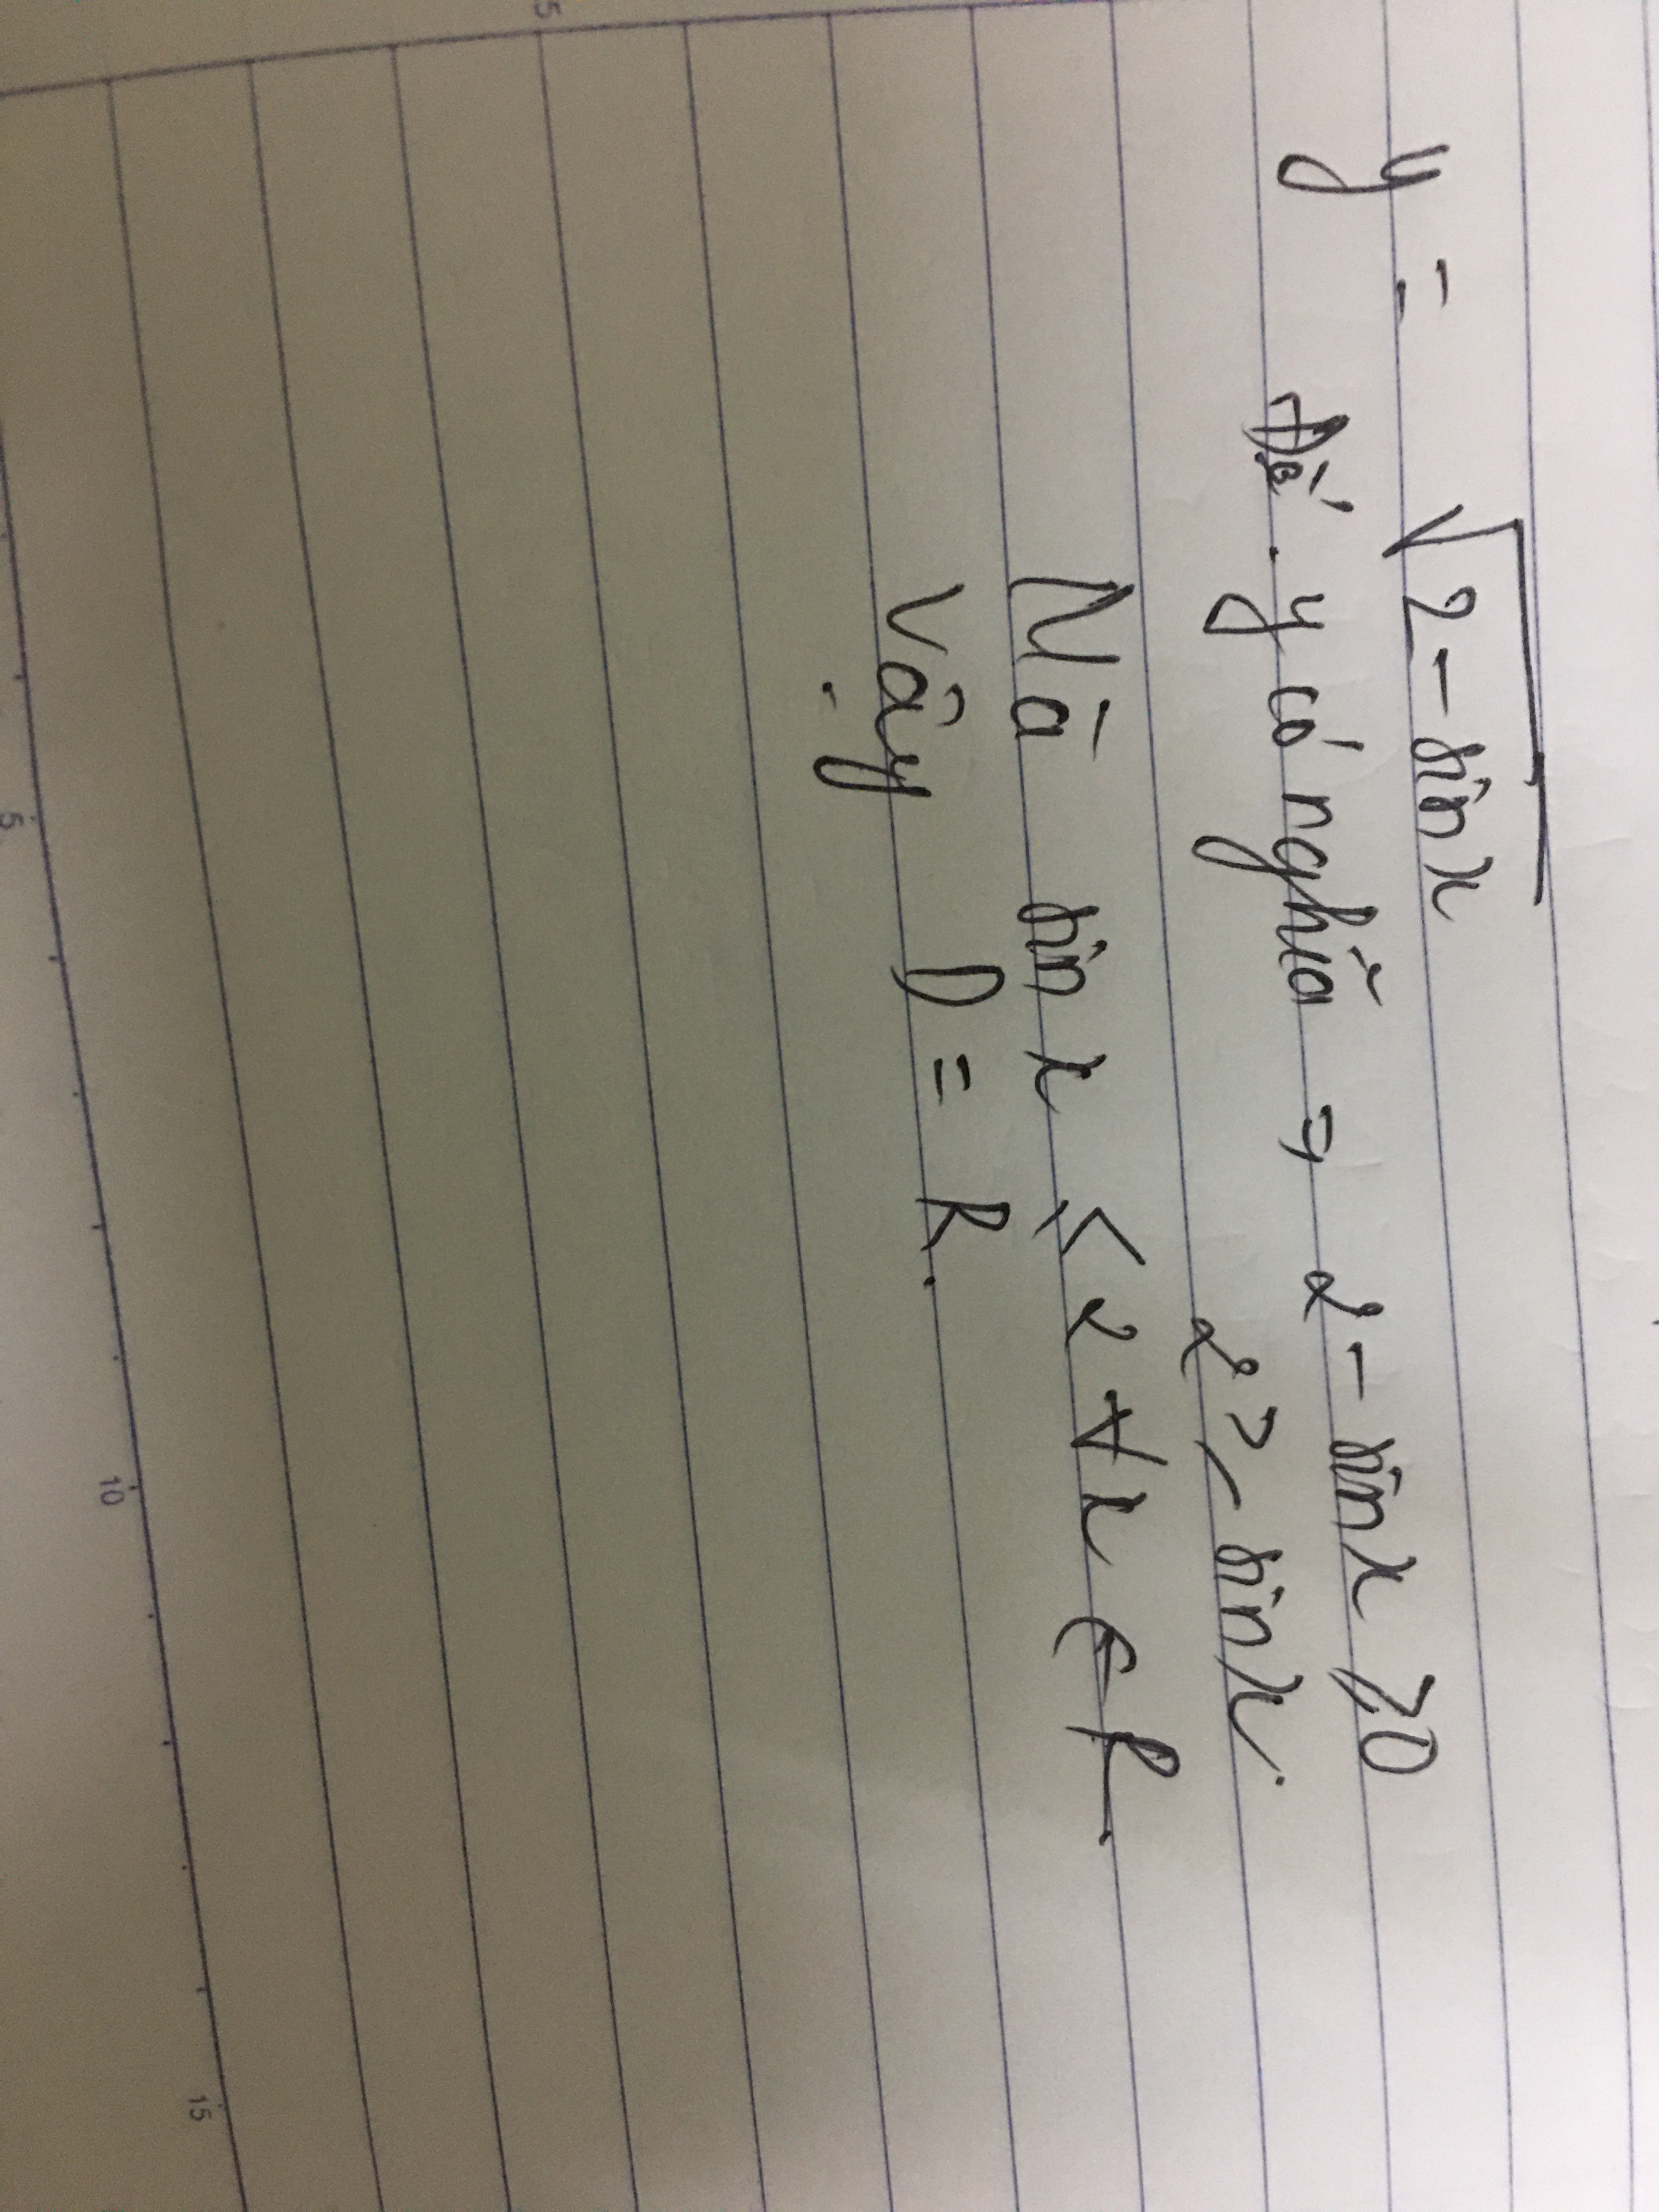 y = √2-sinx
Để y có nghĩa => 2 - sinx ≥ 0
2 ≥ sinx.
Mà sin x ≤ 2 ∀x ∈ R.
Vậy D = R.
5
5
10
15